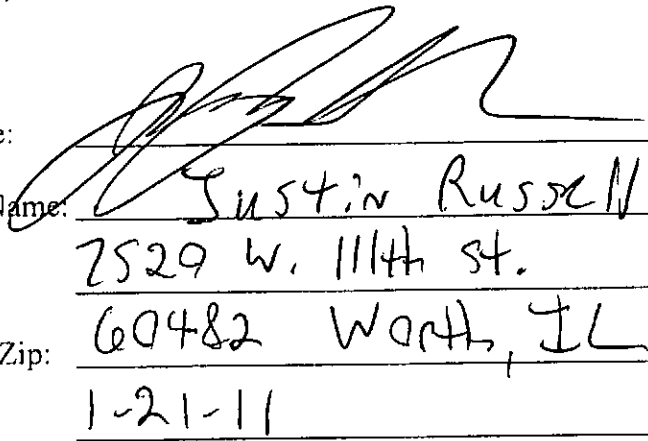 e:
Name: Justin Russell
7529 W. 111th st.
Zip: 60482 Worth, IL
1-21-11